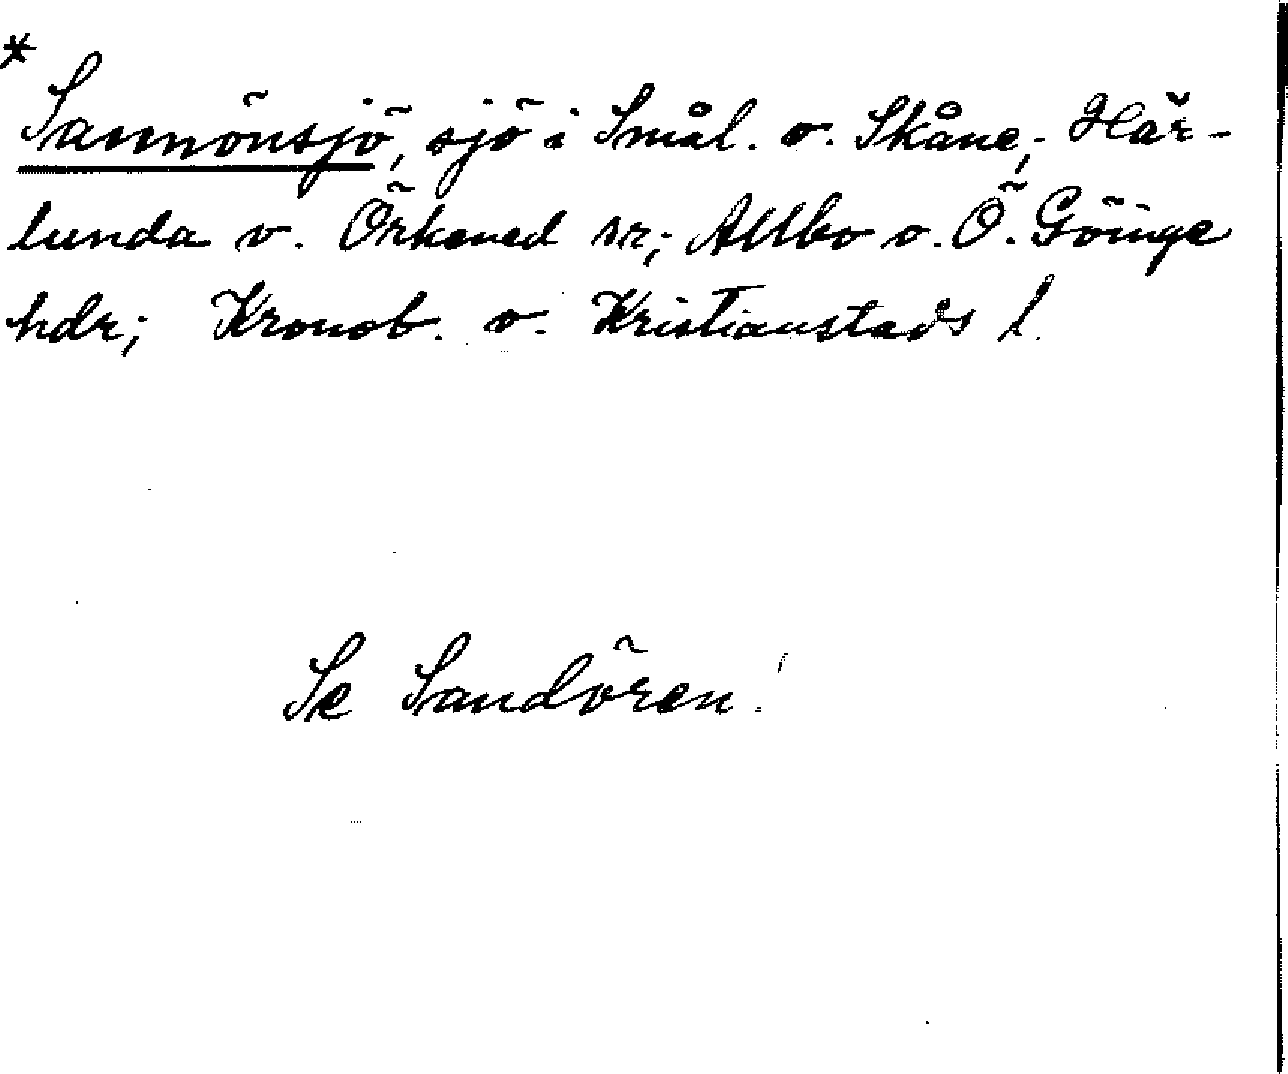 * Sannönsjö, sjö i Smål. o. Skåne; Här-
lunda o. Örkened sr; Allbo o. Ö. Göinge
hdr; Kronob. o. Kristianstads l.
Se Sandören!